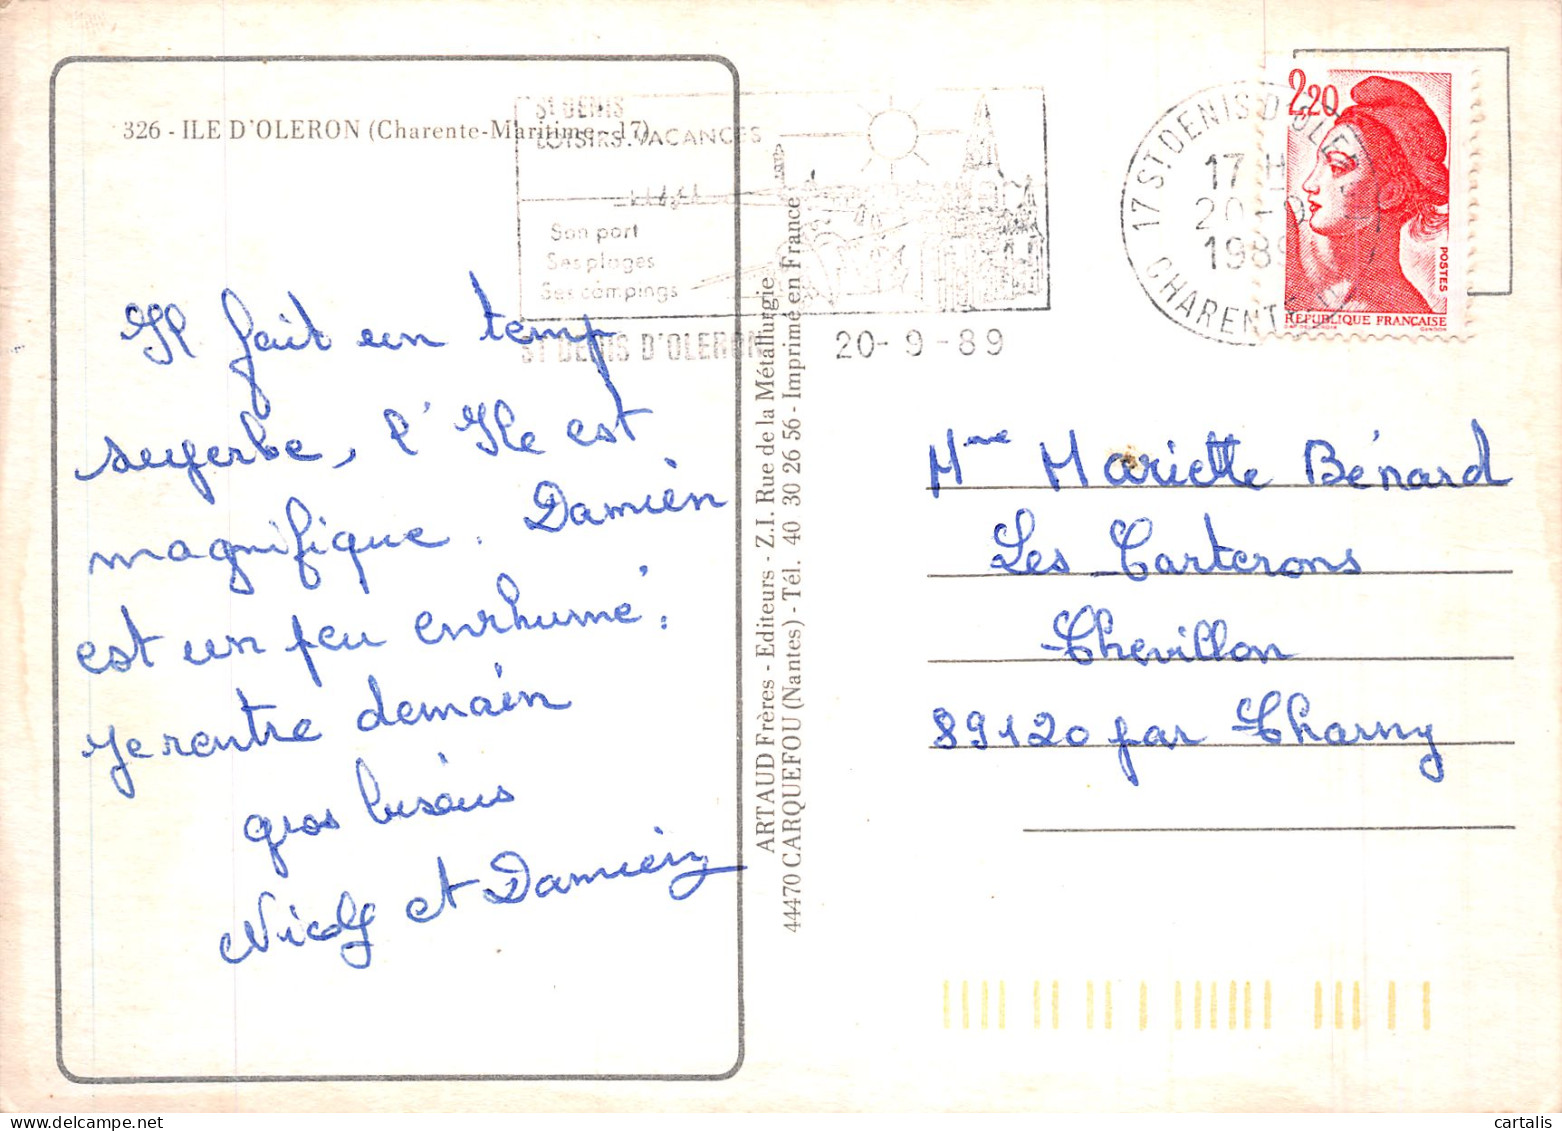 326 - ILE D'OLERON (Charente-Maritime - 17)
St DENIS
LOISIRS. VACANCES
Son port
Ses plages
Ses campings
ST DENIS D'OLERON
20 - 9 - 89
17 ST. DENIS D'OLERON
17 H
20 - 9
1989
CHARENTE
2,20
POSTES
REPUBLIQUE FRANÇAISE
Il fait un temp
superbe, l'Ile est
magnifique. Damien
est un peu enrhumé.
Je rentre demain
gros bisous
Nicole et Damien
ARTAUD Frères - Editeurs - Z.I. Rue de la Métallurgie
44470 CARQUEFOU (Nantes) - Tél. 40 30 26 56 - Imprimé en France
Mme Mariette Bénard
Les Carterons
Chevillon
89120 par Charny
cartalis